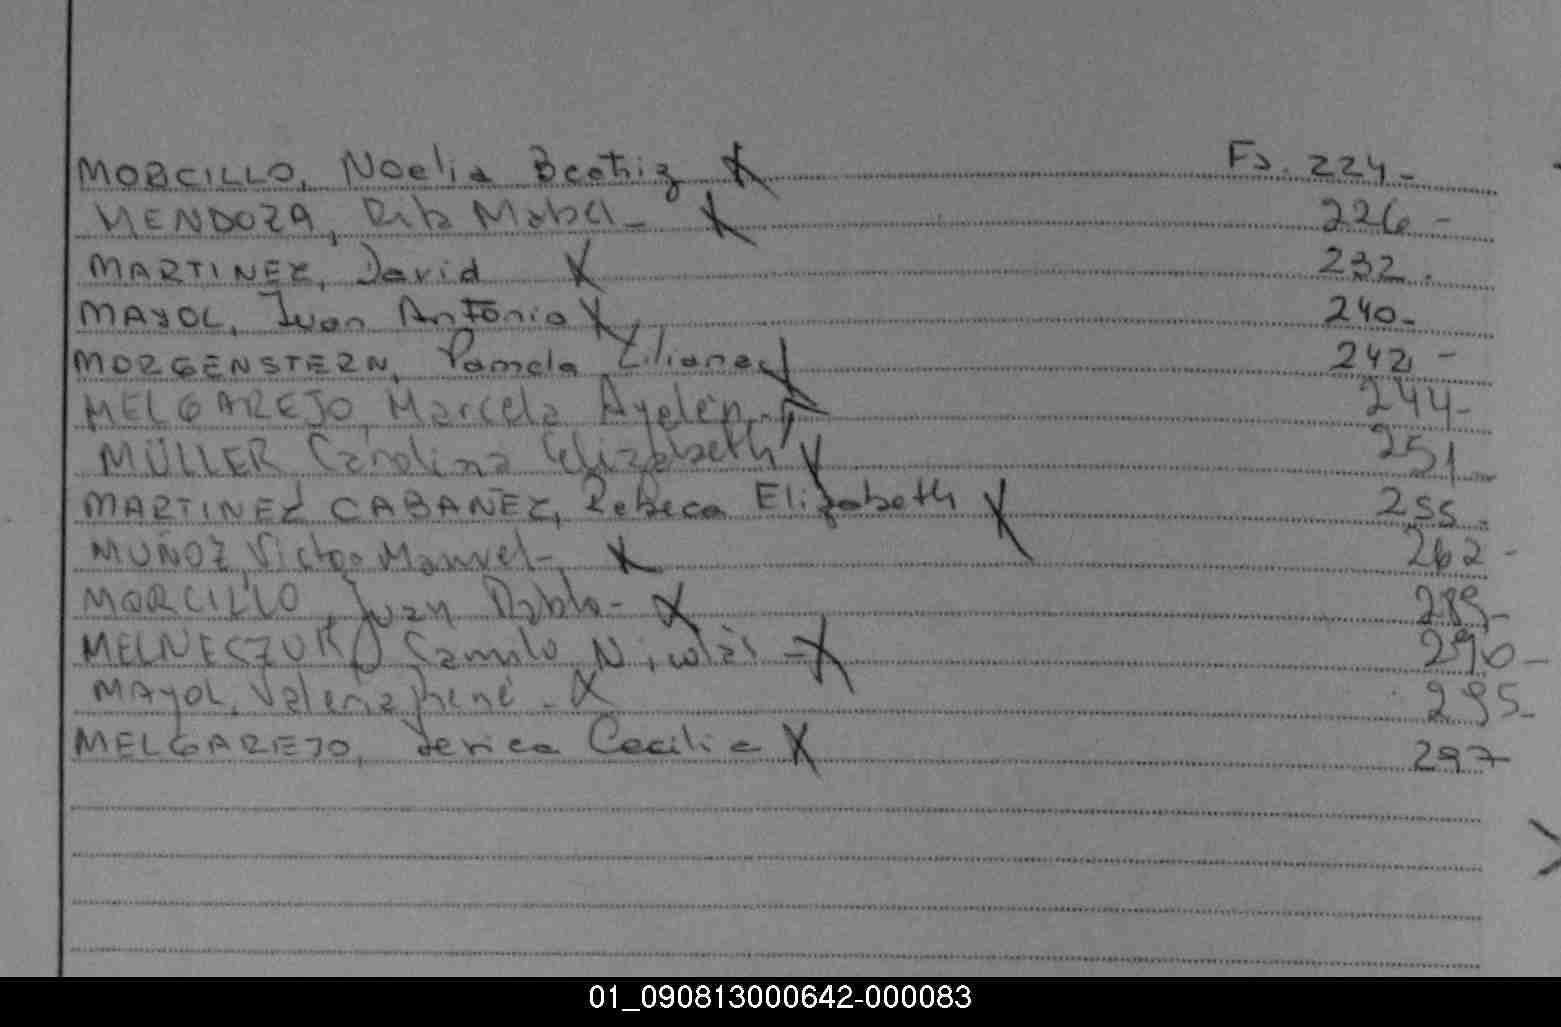 MORCILLO, Noelia Beatriz X Fs. 224-
MENDOZA, Rita Mabel - X 226 -
MARTINEZ, David X 232.
MAYOL, Juan Antonio X 240-
MORGENSTERN, Pamela Liliana X 242 -
MELGAREJO, Marcela Ayelén - X 244-
MÜLLER Carolina Elizabeth X 251-
MARTINEZ CABAÑEZ, Rebeca Elizabeth X 255.
MUÑOZ, Victor Manuel - X 262 -
MORCILLO, Juan Pablo - X 289-
MELNECZUK, Camilo Nicolás - X 290-
MAYOL, Valeria Irené - X 295-
MELGAREJO, Cecilia X 297
01_090813000642-000083